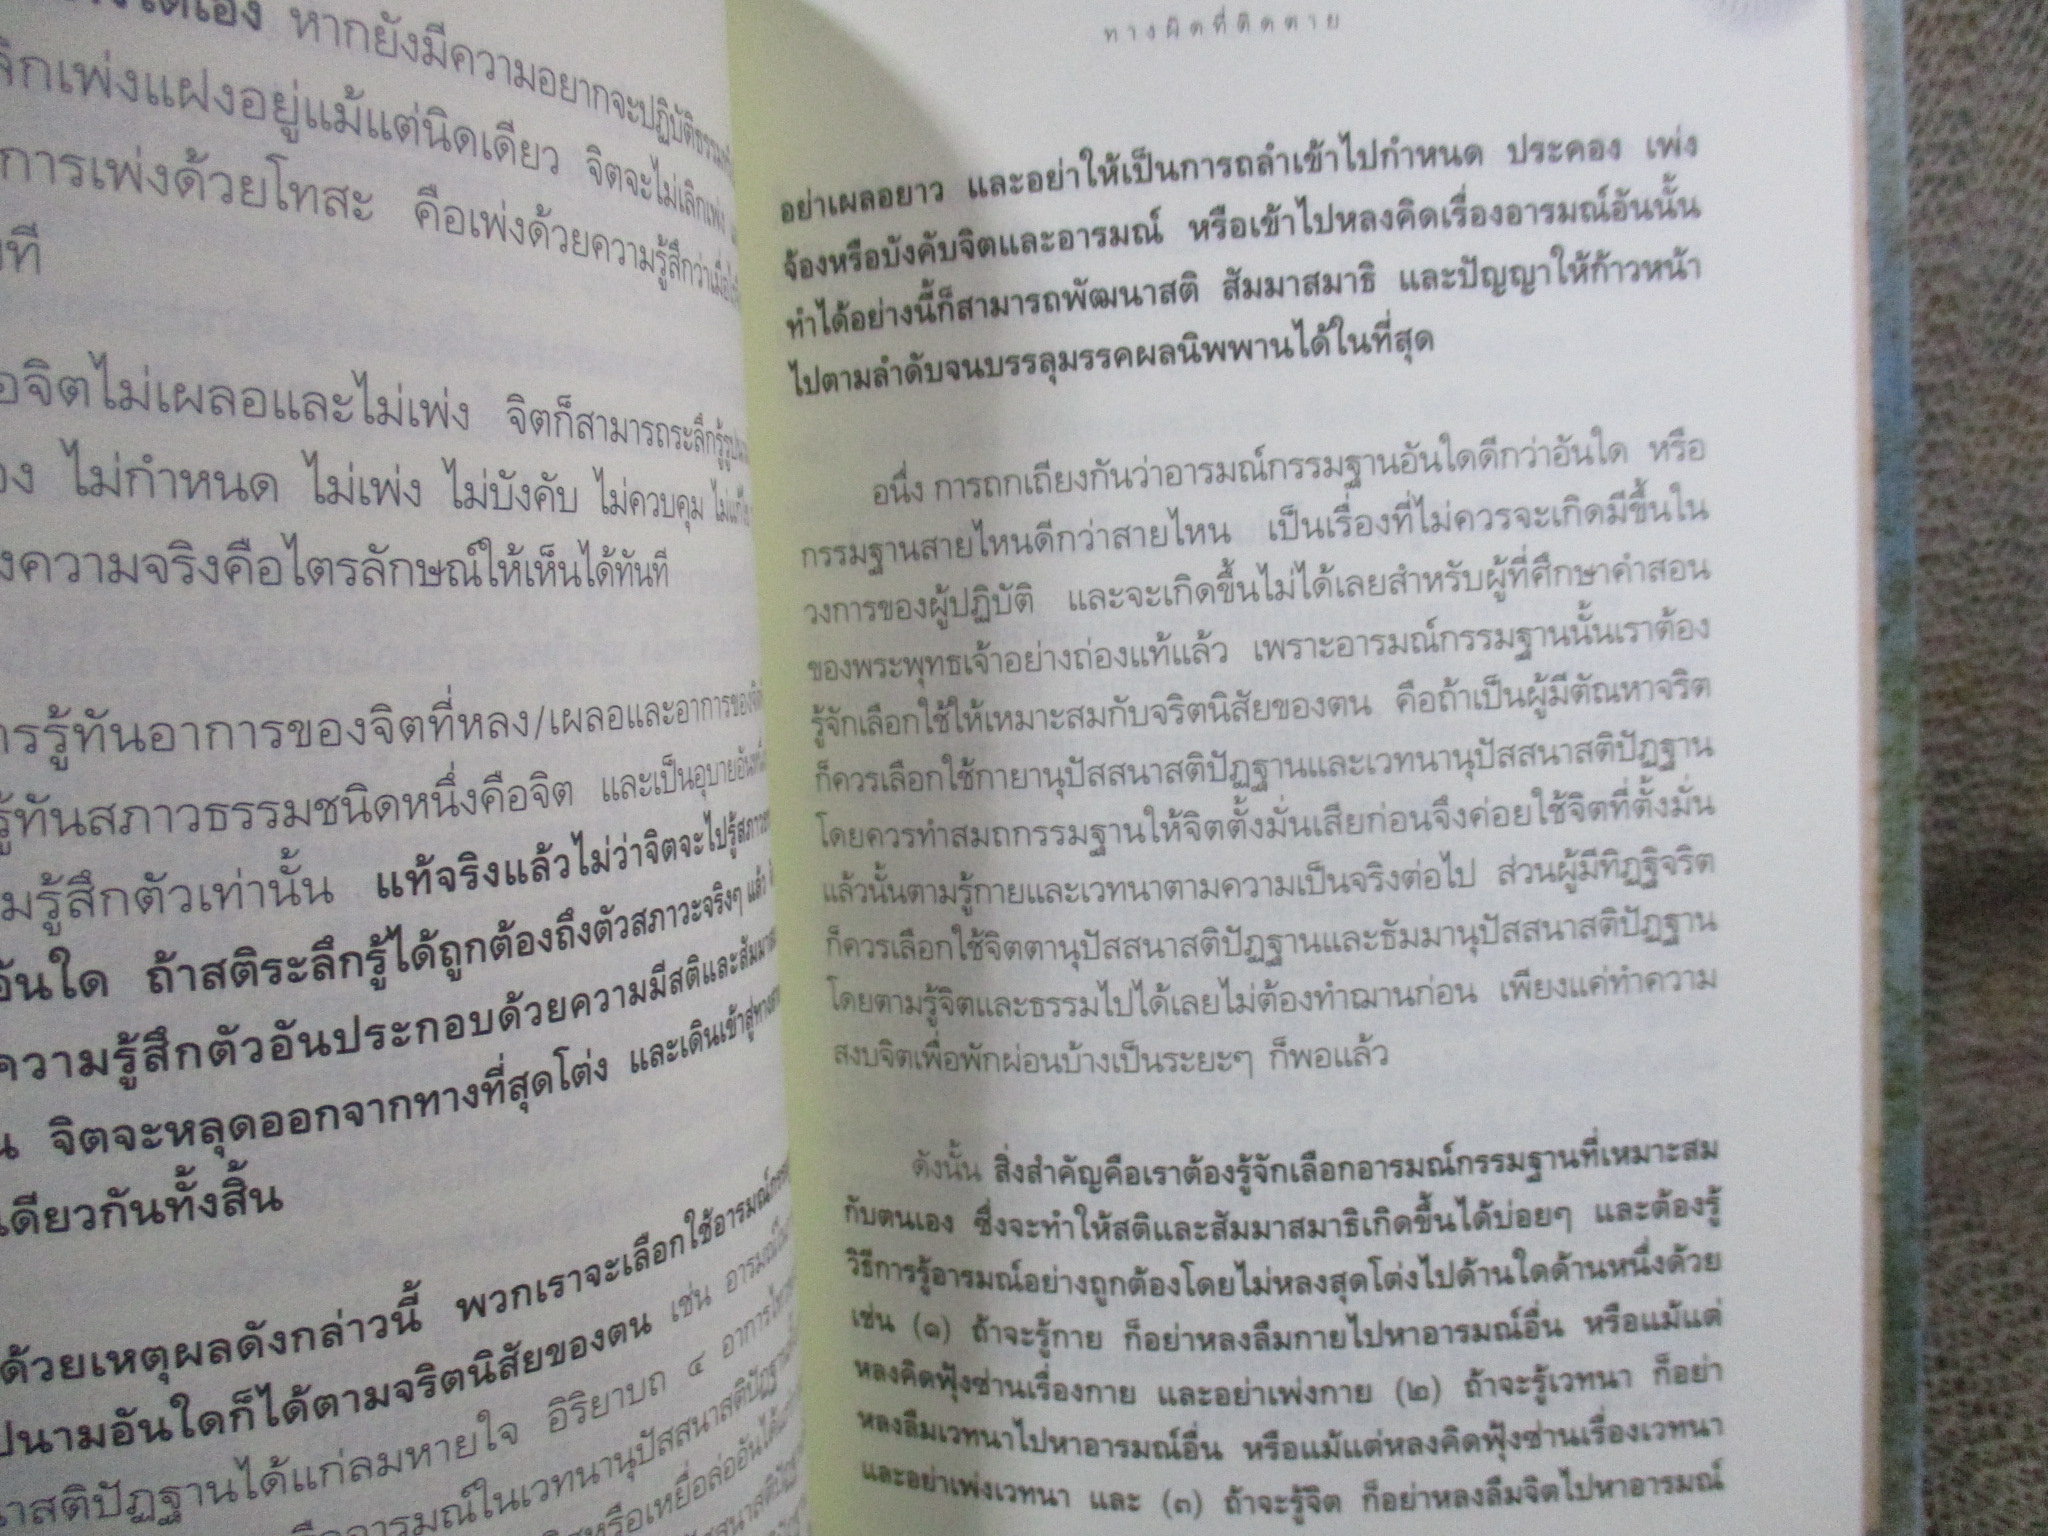 หากยังมีความอยากจะปฏิบัติธรรม
เพ่งแฝงอยู่แม้แต่นิดเดียว จิตจะไม่เลิกเพ่ง
การเพ่งด้วยโทสะ คือเพ่งด้วยความรู้สึกว่าเมื่อ
ที
จิตไม่เผลอและไม่เพ่ง จิตก็สามารถระลึกรู้
ไม่กำหนด ไม่เพ่ง ไม่บังคับ ไม่ควบคุม
ความจริงคือไตรลักษณ์ให้เห็นได้ทันที
รู้ทันอาการของจิตที่หลง/เผลอและอาการของ
รู้ทันสภาวธรรมชนิดหนึ่งคือจิต และเป็นอุบาย
รู้สึกตัวเท่านั้น แท้จริงแล้วไม่ว่าจิตจะไปรู้
อันใด ถ้าสติระลึกรู้ได้ถูกต้องถึงตัวสภาวะจริงๆ แล้ว
ความรู้สึกตัวอันประกอบด้วยความมีสติและ
จิตจะหลุดออกจากทางที่สุดโต่ง และเดินเข้าสู่
เดียวกันทั้งสิ้น
ด้วยเหตุผลดังกล่าวนี้ พวกเราจะเลือกใช้
นามอันใดก็ได้ตามจริตนิสัยของตน เช่น
สติปัฏฐานได้แก่ลมหายใจ อิริยาบถ ๔ อาการ
อารมณ์ในเวทนานุปัสสนาสติปัฏฐาน
หรือเหยื่อล่ออันได้
ทางผิดที่ติดตาย
อย่าเผลอยาว และอย่าให้เป็นการถลำเข้าไปกำหนด ประคอง เพ่ง
จ้องหรือบังคับจิตและอารมณ์ หรือเข้าไปหลงคิดเรื่องอารมณ์อันนั้น
ทำได้อย่างนี้ก็สามารถพัฒนาสติ สัมมาสมาธิ และปัญญาให้ก้าวหน้า
ไปตามลำดับจนบรรลุมรรคผลนิพพานได้ในที่สุด
อนึ่ง การถกเถียงกันว่าอารมณ์กรรมฐานอันใดดีกว่าอันใด หรือ
กรรมฐานสายไหนดีกว่าสายไหน เป็นเรื่องที่ไม่ควรจะเกิดมีขึ้นใน
วงการของผู้ปฏิบัติ และจะเกิดขึ้นไม่ได้เลยสำหรับผู้ที่ศึกษาคำสอน
ของพระพุทธเจ้าอย่างถ่องแท้แล้ว เพราะอารมณ์กรรมฐานนั้นเราต้อง
รู้จักเลือกใช้ให้เหมาะสมกับจริตนิสัยของตน คือถ้าเป็นผู้มีตัณหาจริต
ก็ควรเลือกใช้กายานุปัสสนาสติปัฏฐานและเวทนานุปัสสนาสติปัฏฐาน
โดยควรทำสมถกรรมฐานให้จิตตั้งมั่นเสียก่อนจึงค่อยใช้จิตที่ตั้งมั่น
แล้วนั้นตามรู้กายและเวทนาตามความเป็นจริงต่อไป ส่วนผู้มีทิฏฐิจริต
ก็ควรเลือกใช้จิตตานุปัสสนาสติปัฏฐานและธัมมานุปัสสนาสติปัฏฐาน
โดยตามรู้จิตและธรรมไปได้เลยไม่ต้องทำฌานก่อน เพียงแค่ทำความ
สงบจิตเพื่อพักผ่อนบ้างเป็นระยะๆ ก็พอแล้ว
ดังนั้น สิ่งสำคัญคือเราต้องรู้จักเลือกอารมณ์กรรมฐานที่เหมาะสม
กับตนเอง ซึ่งจะทำให้สติและสัมมาสมาธิเกิดขึ้นได้บ่อยๆ และต้องรู้
วิธีการรู้อารมณ์อย่างถูกต้องโดยไม่หลงสุดโต่งไปด้านใดด้านหนึ่งด้วย
เช่น (๑) ถ้าจะรู้กาย ก็อย่าหลงลืมกายไปหาอารมณ์อื่น หรือแม้แต่
หลงคิดฟุ้งซ่านเรื่องกาย และอย่าเพ่งกาย (๒) ถ้าจะรู้เวทนา ก็อย่า
หลงลืมเวทนาไปหาอารมณ์อื่น หรือแม้แต่หลงคิดฟุ้งซ่านเรื่องเวทนา
และอย่าเพ่งเวทนา และ (๓) ถ้าจะรู้จิต ก็อย่าหลงลืมจิตไปหาอารมณ์